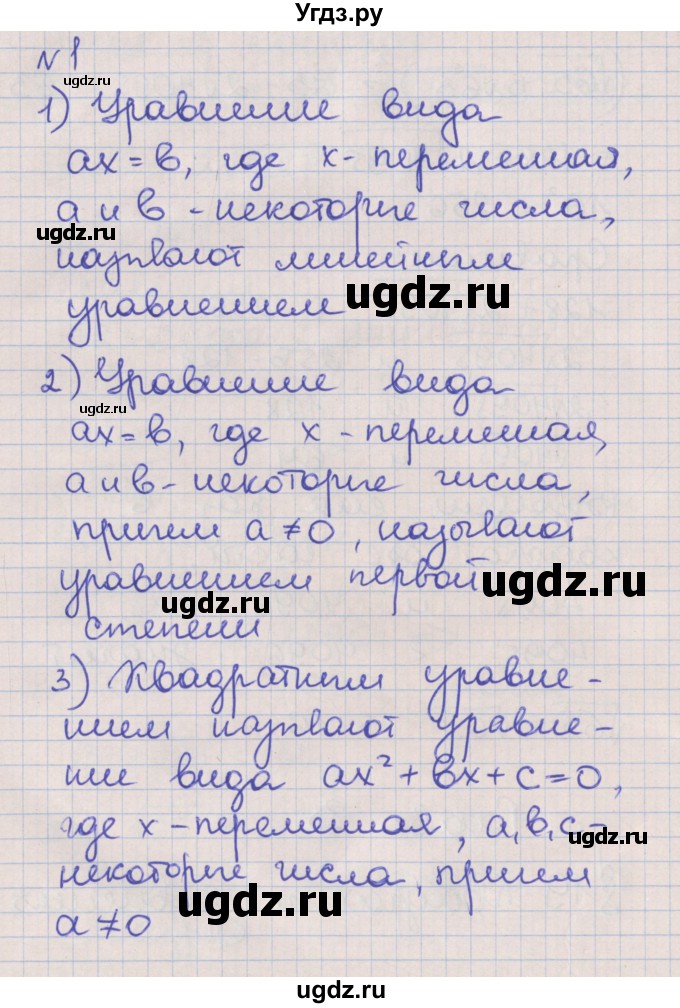 Угдз.ру
N 1
ugdz.ru
1) Уравнение вида
ax = b, где x - переменная,
a и b - некоторые числа,
ugdz.ru
называют линейным
уравнением ugdz.ru
2) Уравнение вида
ugdz.ru
ax = b, где x - переменная,
a и b - некоторые числа,
причем a ≠ 0, называют
уравнением первой ugdz.ru
ugdz.ru
степени
3) Квадратным уравне-
нием называют уравне-
ние вида ax² + bx + c = 0,
где x - переменная, a, b, c -
ugdz.ru
некоторые числа, причем
ugdz.ru
a ≠ 0
ugdz.ru